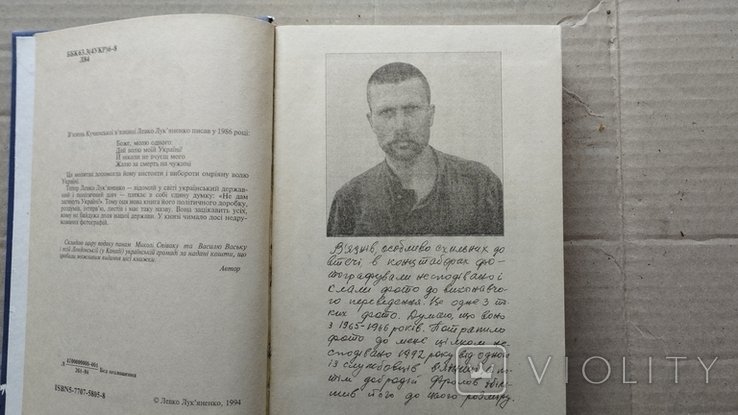 ББК63.3(4УКР)6-8
Л84
В'язень Кучинської в'язниці Левко Лук'яненко писав у 1986 році:
Боже, молю одного:
Дай волю моїй Україні!
Й ніколи не почуєш мого
Жалю за смерть на чужині
Ця молитва допомогла йому вистояти і вибороти омріяну волю
Україні.
Тепер Левко Лук'яненко — відомий у світі український держав-
ний і політичний діяч — плекає в собі єдину думку: «Не дам
загинуть Україні!» Тому оця нова книга його політичного доробку,
роздумів, інтерв'ю, листів і має таку назву. Вона зацікавить усіх,
кому не байдужа доля нашої держави. У книзі чимало досі недру-
кованих фотографій.
Складаю щиру подяку панам Миколі Сливаку та Василю Ваську
і всій Лондонській (у Канаді) українській громаді за надані кошти, що
зробили можливим видання цієї книжки.
Автор
Л 0300000000-001
201-94 Без оголошення
ISBN5-7707-5805-8
© Левко Лук'яненко, 1994
В'язнів, особливо схильних до
втечі, в концтаборах фо-
тографували несподівано і
слали фото до виконавчо-
го переведення. Це одне з та-
ких фото. Думаю, що воно
з 1965-1966 років. Потрапило
фото до мене цілком не-
сподівано 1992 року від одного
із службовців в'язниці, а по-
тім добродій збіль-
шив його до цього розміру.
VIOLITY